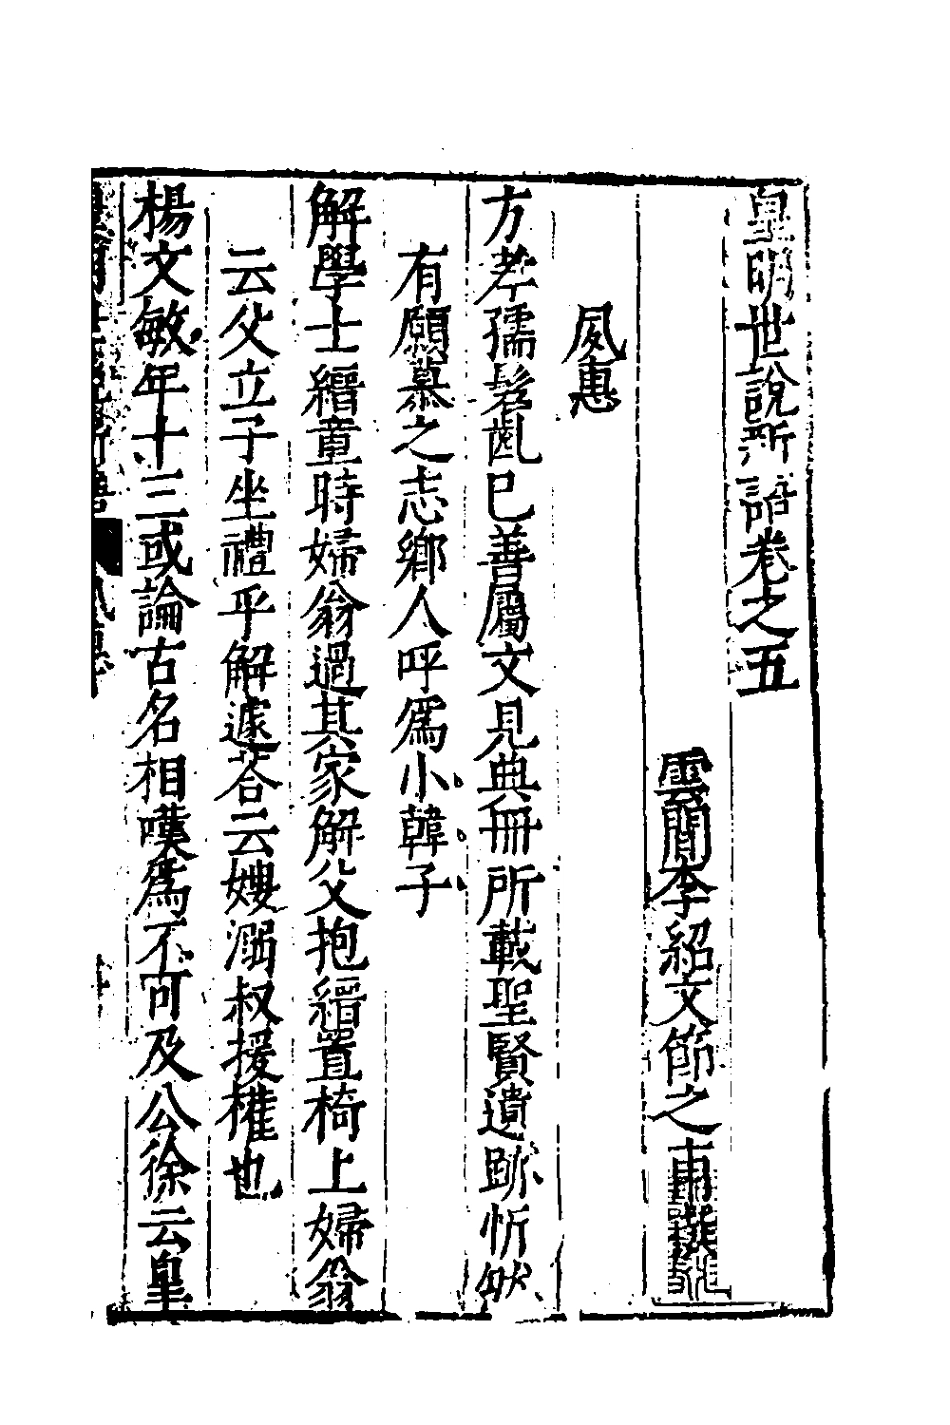 皇明世說新語卷之五
雲間李紹文節之甫撰
夙惠
方孝孺髫齔巳善屬文見典冊所載聖賢遺跡忻然
有願慕之志鄉人呼爲小韓子
解學士縉童時婦翁過其家解父抱縉置椅上婦翁
云父立子坐禮乎解遽荅云嫂溺叔援權也
楊文敏年十三或論古名相嘆爲不可及公徐云皇
皇明世說新語 夙惠